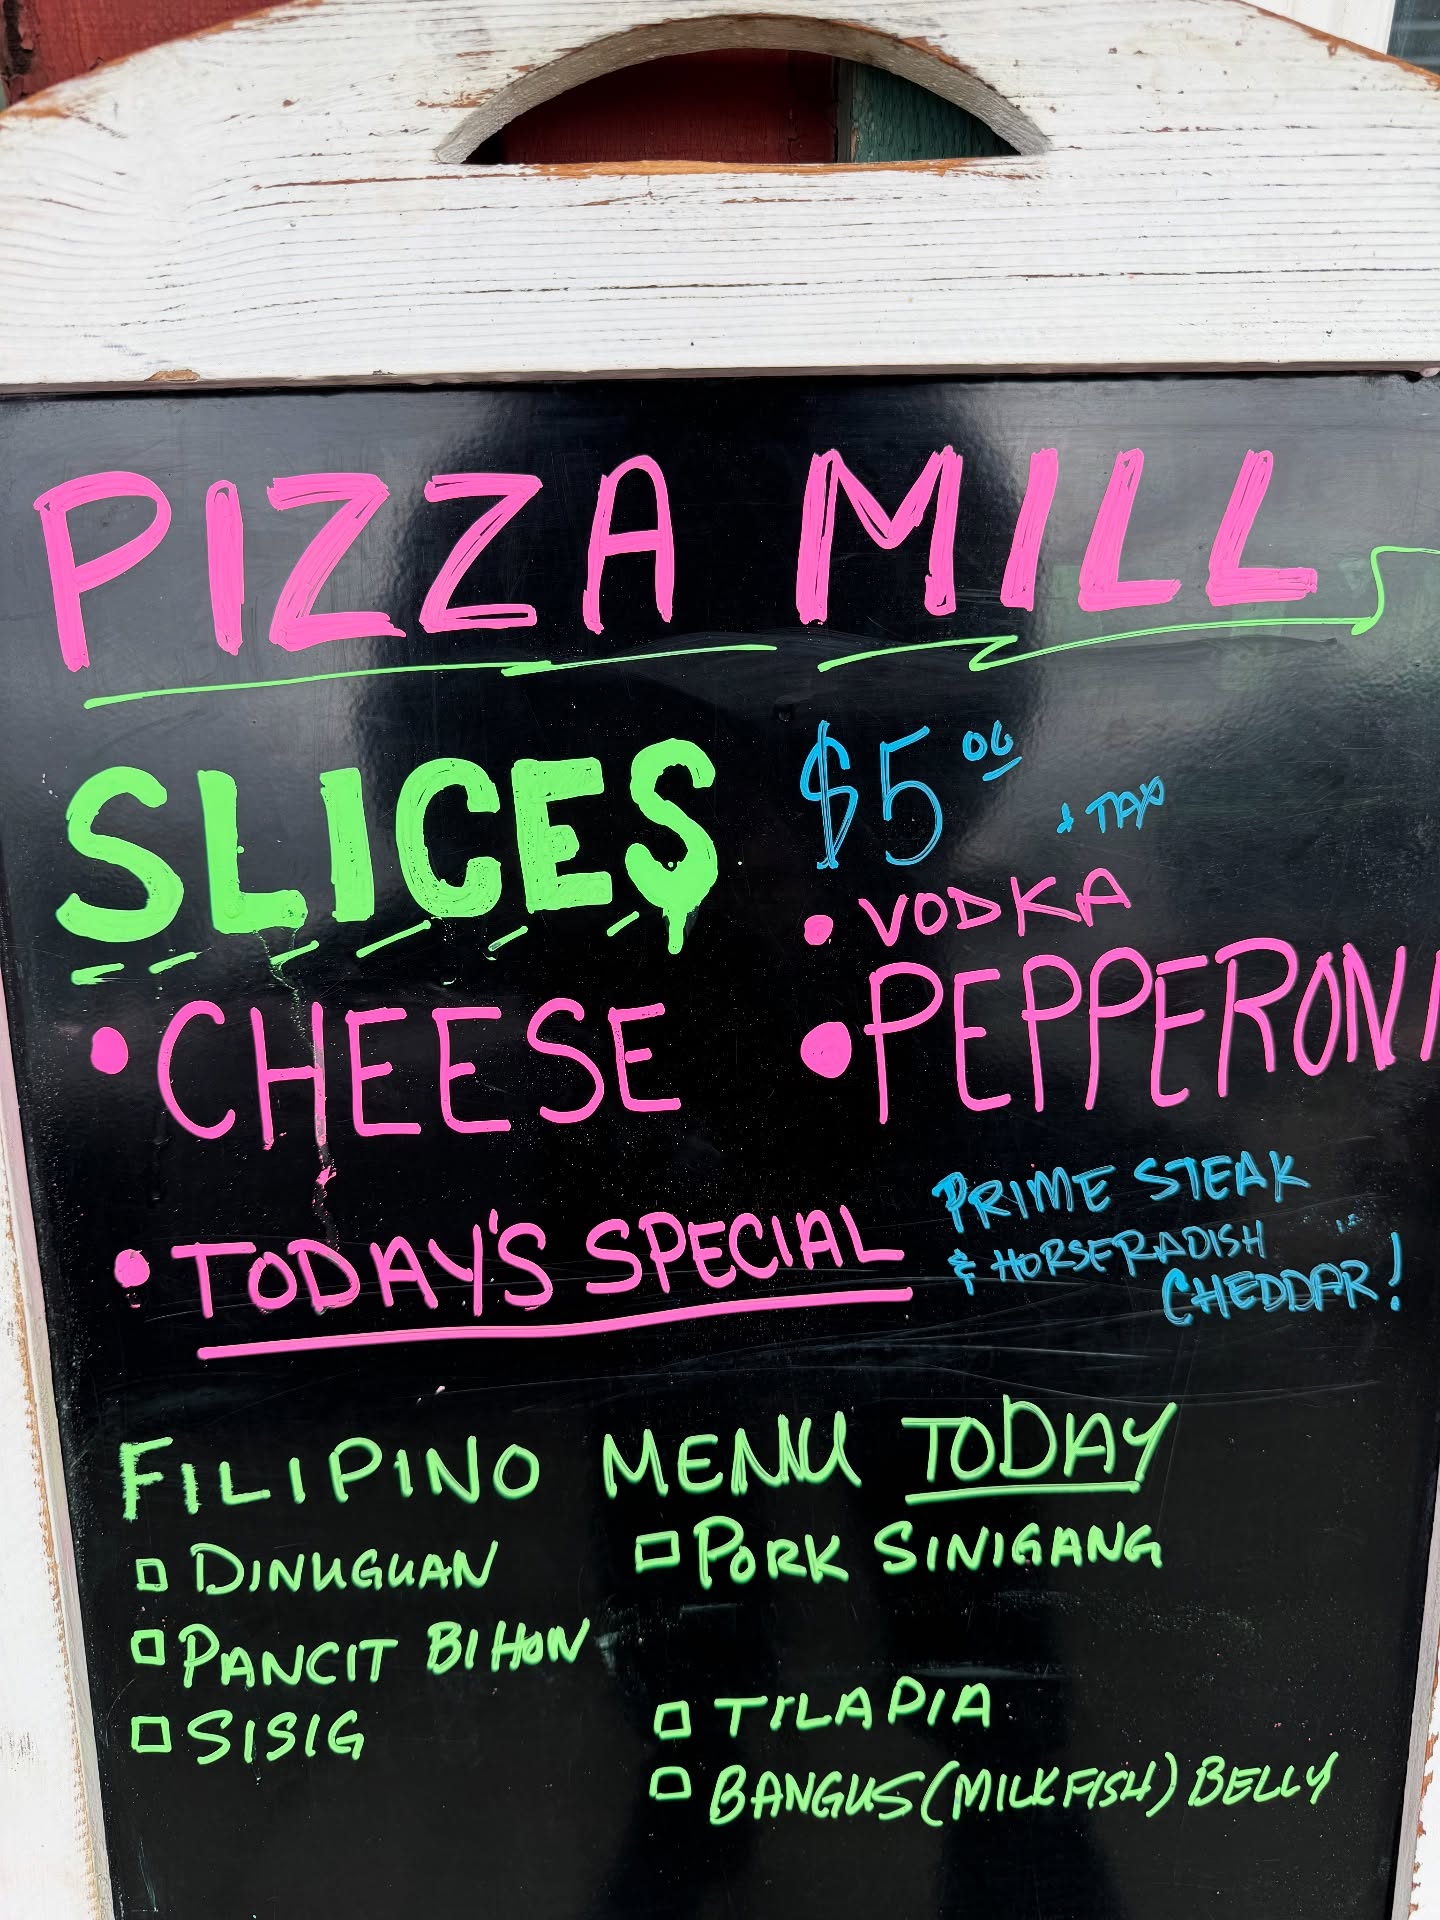 PIZZA MILL
SLICES $5.00 + TAX
• VODKA
• CHEESE • PEPPERONI
• TODAY'S SPECIAL PRIME STEAK
& HORSERADISH
CHEDDAR!
FILIPINO MENU TODAY
DINUGUAN PORK SINIGANG
PANCIT BIHON
SISIG TILAPIA
BANGUS (MILKFISH) BELLY